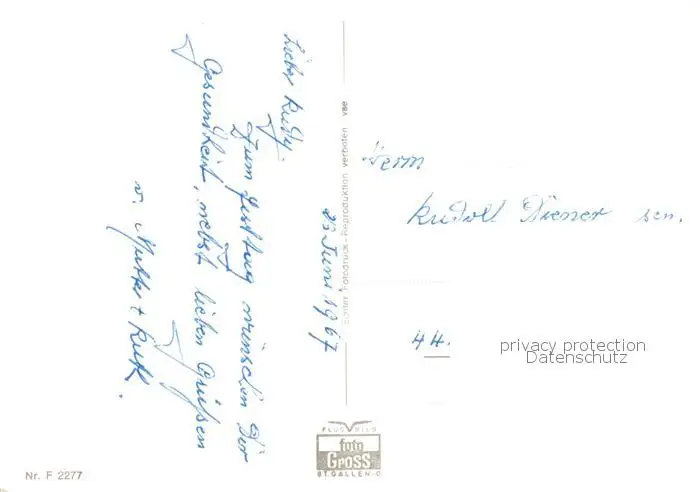 25 Juni 1967
Lieber Rudy.
Zum Festtag wünschen Dir
Gesundheit, nebst lieben Grüßen
v. Mutter + Ruth.
Echter Fotodruck-Reproduktion verboten vse
Herrn
Rudolf Diener sen.
44.
privacy protection
Datenschutz
FLUGBILD
foto
GROSS
ST.GALLEN-O
Nr. F 2277